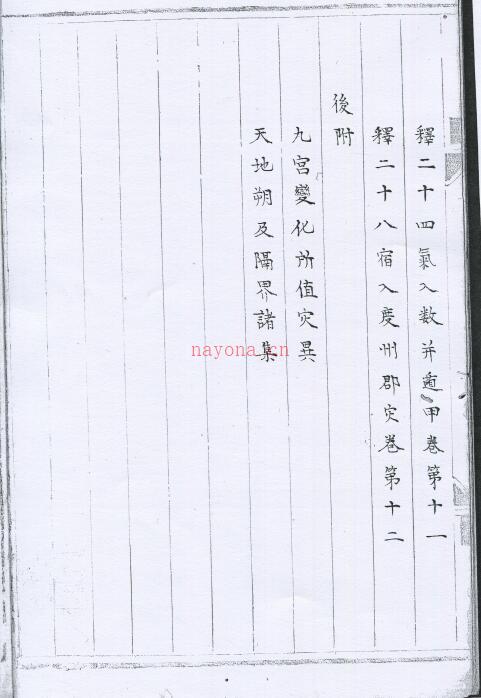 釋二十四氣入数并遁甲卷第十一
釋二十八宿入度州郡灾卷第十二
後附
九宮變化所值灾異
天地朔及隔界諸集
nayona.cn